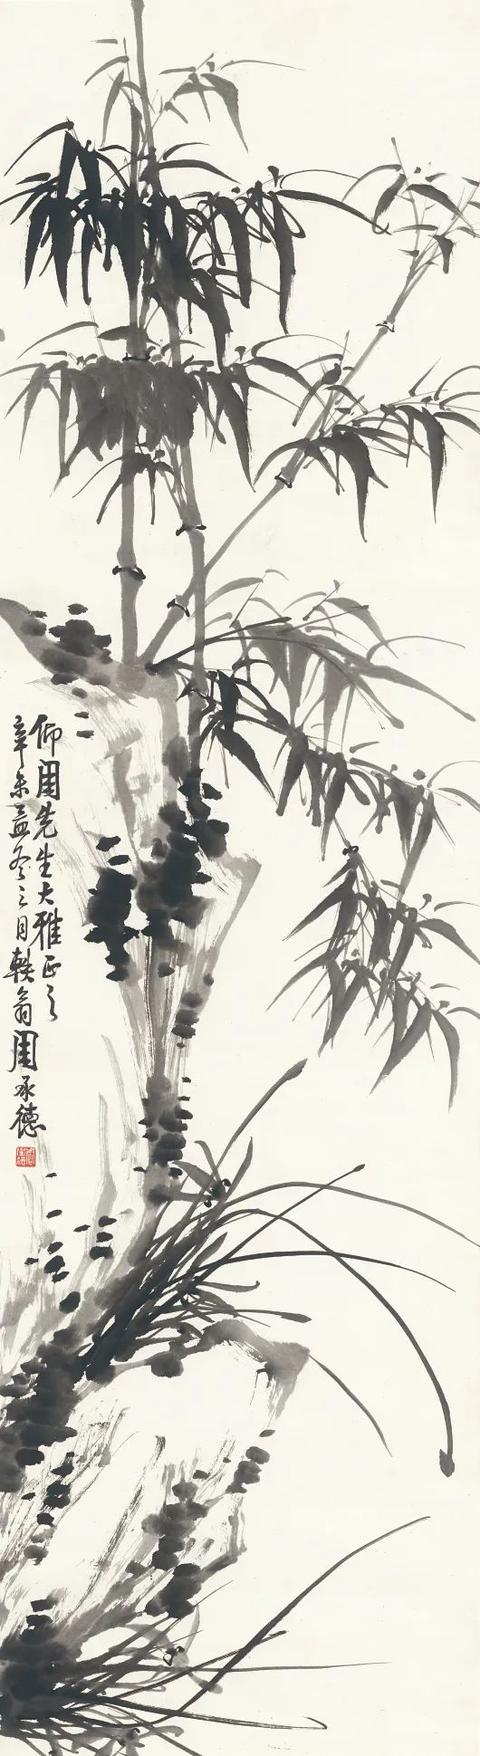 仰周先生大雅正之
辛未孟冬之月軼翁周承德